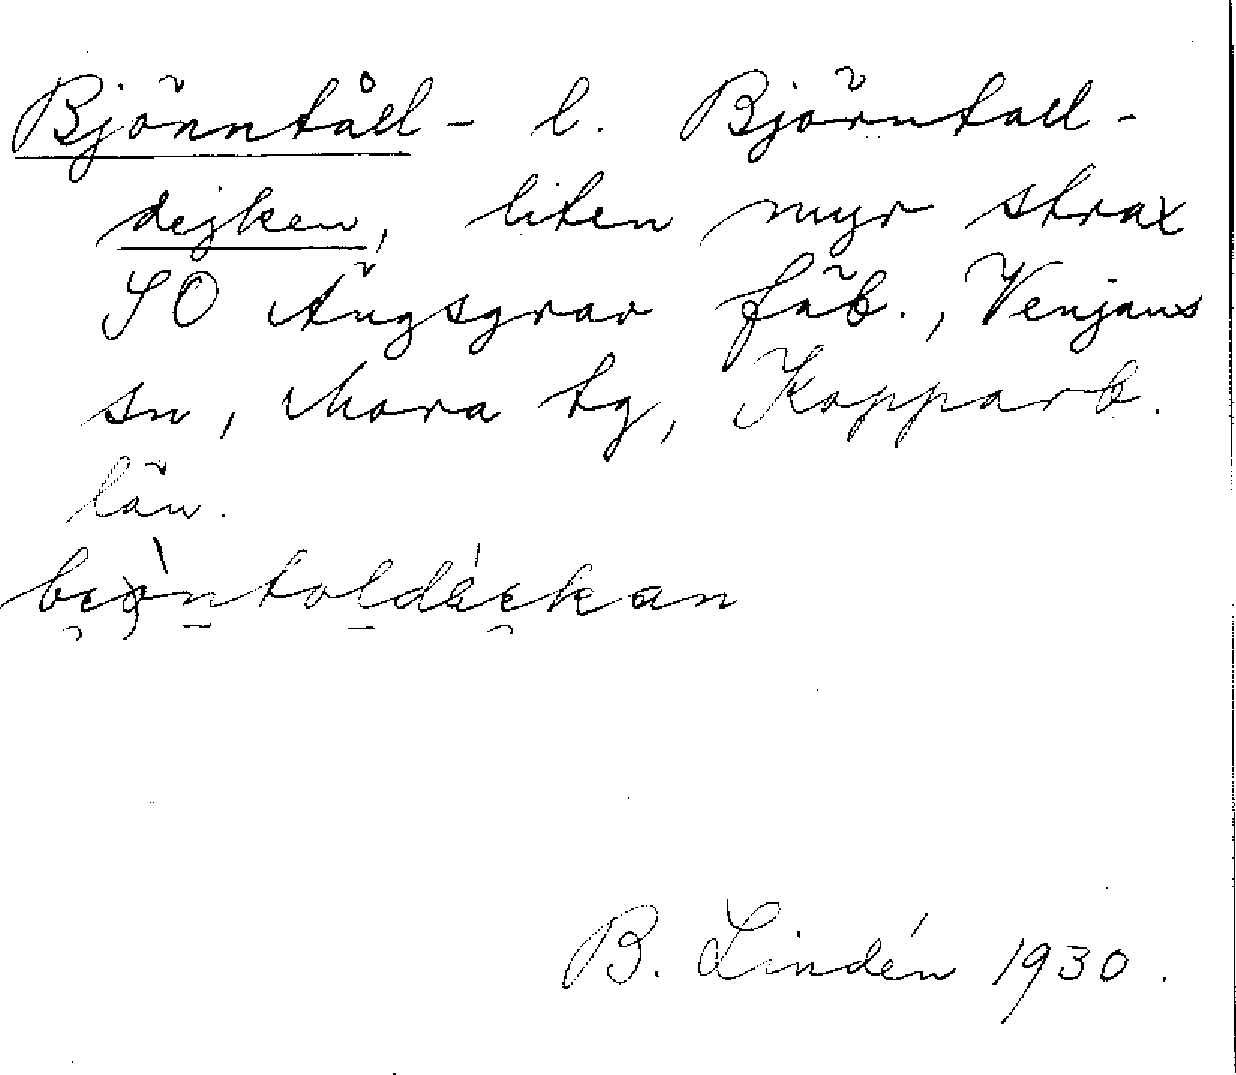 Björntåll- l. Björntall-
dejken, liten myr strax
SO Ängsgrav fäb., Venjans
sn, Mora tg, Kopparb.
län.
B. Lindén 1930.